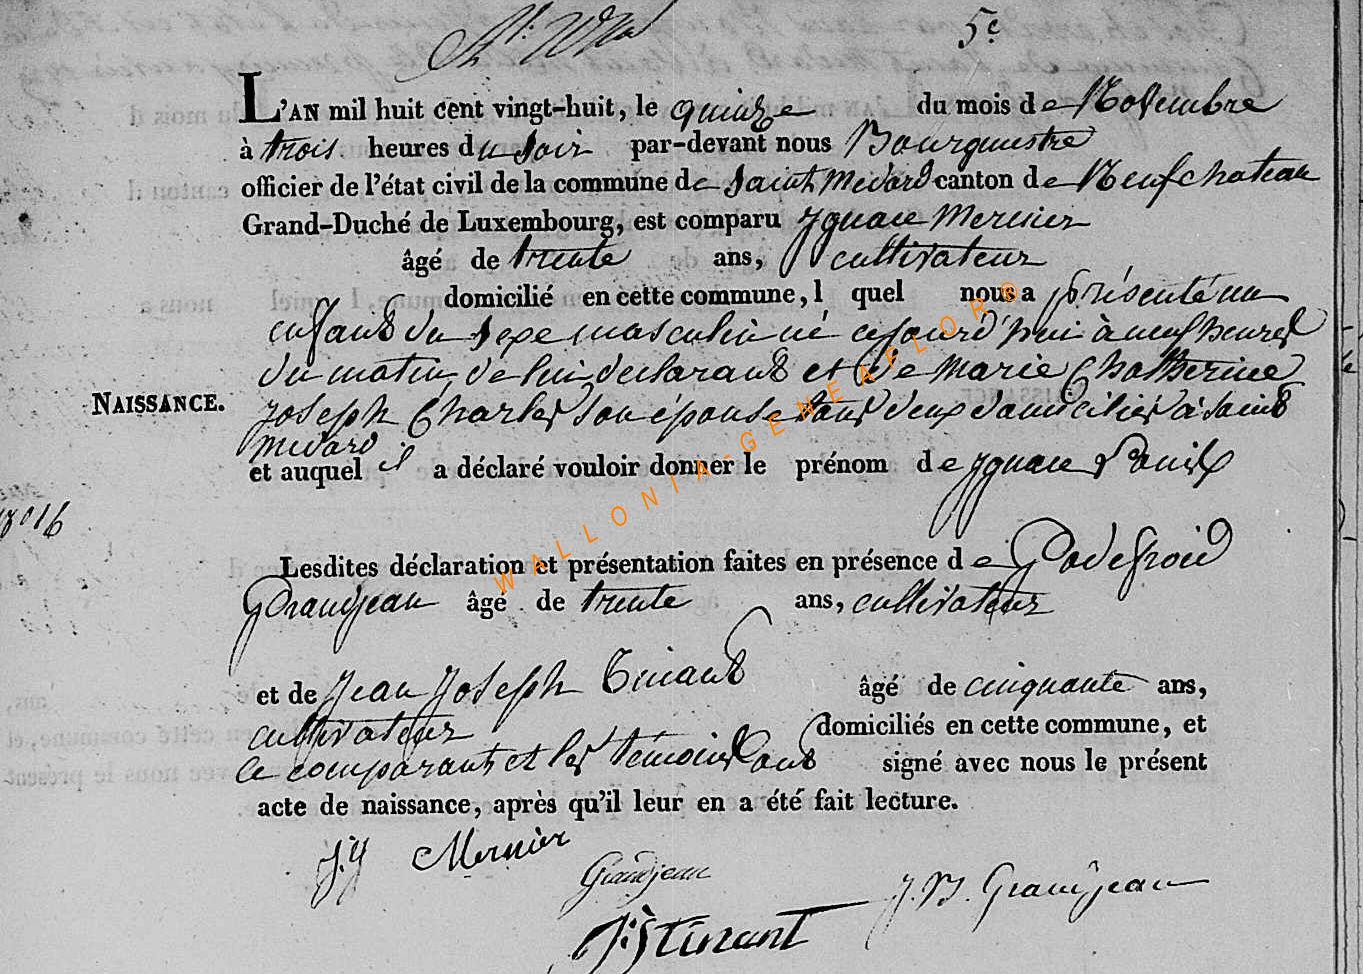 5e
L'AN mil huit cent vingt-huit, le quinze du mois de Novembre
à trois heures du Soir par-devant nous Bourgmestre
officier de l'état civil de la commune de Saint Medard canton de Neufchateau
Grand-Duché de Luxembourg, est comparu Ignace Mernier
âgé de trente ans, cultivateur
domicilié en cette commune, l quel nous a présenté un
enfant du sexe masculin né cejourd'hui à neuf heures
du matin, de lui declarant et de Marie Chatherine
NAISSANCE.
Joseph Charles son épouse tous deux domiciliés à Saint
Medard
et auquel il a déclaré vouloir donner le prénom de Ignace
N° 16
Lesdites déclaration et présentation faites en présence de Godefroid
Grandjean âgé de trente ans, cultivateur
et de Jean Joseph Tinant âgé de cinquante ans,
cultivateur domiciliés en cette commune, et
le comparant et les témoins ont signé avec nous le présent
acte de naissance, après qu'il leur en a été fait lecture.
J. Mernier
Grandjean
J. B. Grandjean
Tinant
WALLONIA-GENEAFLOR©